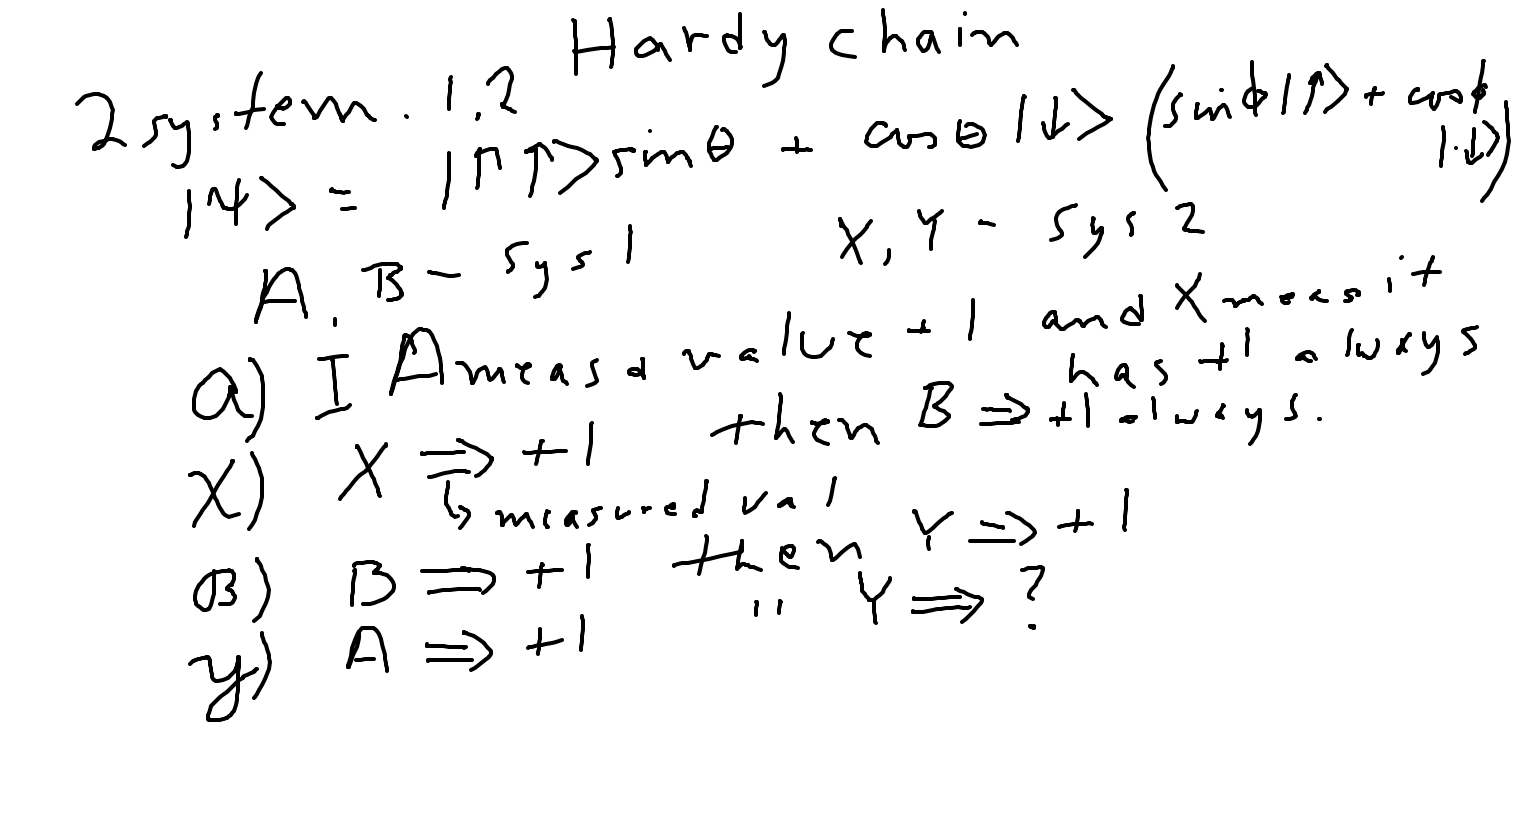 Hardy chain
2 system. 1,2
|ψ> = |↑↑>sinθ + cosθ|↓>(sinϕ|↑> + cosϕ|↓>)
A, B - sys 1 X, Y - sys 2
a) I A measd value +1 and X meas it has +1 always
x) X ⇒ +1 then B ⇒ +1 always.
↳ measured val
B) B ⇒ +1 then Y ⇒ +1
y) A ⇒ +1 " Y ⇒ ?